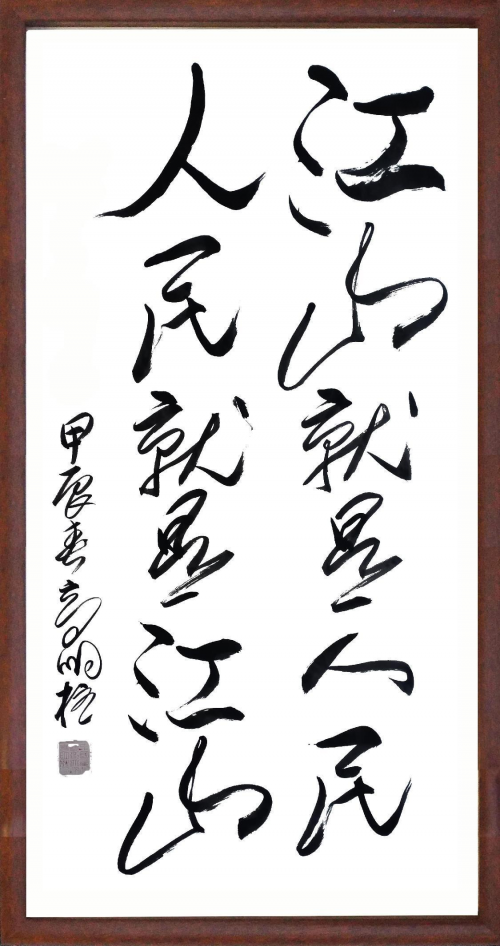 江山就是人民
人民就是江山
甲辰春高明柱